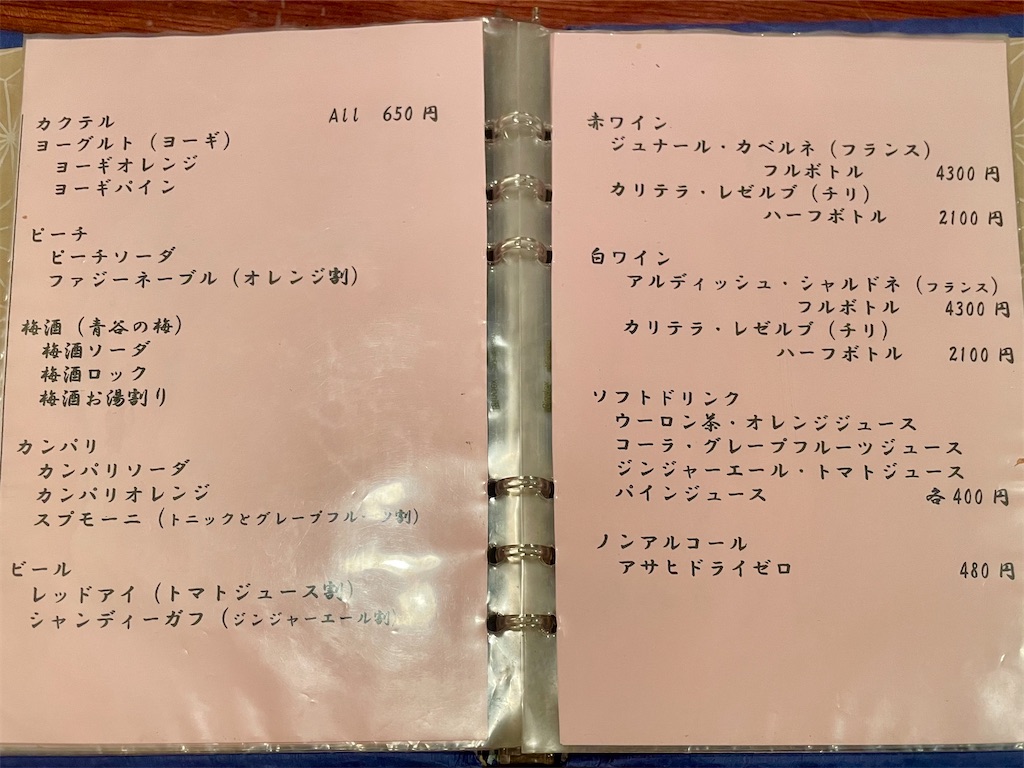 カクテル All 650円
ヨーグルト（ヨーギ）
ヨーギオレンジ
ヨーギパイン
ピーチ
ピーチソーダ
ファジーネーブル（オレンジ割）
梅酒（青谷の梅）
梅酒ソーダ
梅酒ロック
梅酒お湯割り
カンパリ
カンパリソーダ
カンパリオレンジ
スプモーニ（トニックとグレープフルーツ割）
ビール
レッドアイ（トマトジュース割）
シャンディーガフ（ジンジャーエール割）
赤ワイン
ジュナール・カベルネ（フランス）
フルボトル 4300円
カリテラ・レゼルブ（チリ）
ハーフボトル 2100円
白ワイン
アルディッシュ・シャルドネ（フランス）
フルボトル 4300円
カリテラ・レゼルブ（チリ）
ハーフボトル 2100円
ソフトドリンク
ウーロン茶・オレンジジュース
コーラ・グレープフルーツジュース
ジンジャーエール・トマトジュース
パインジュース 各400円
ノンアルコール
アサヒドライゼロ 480円